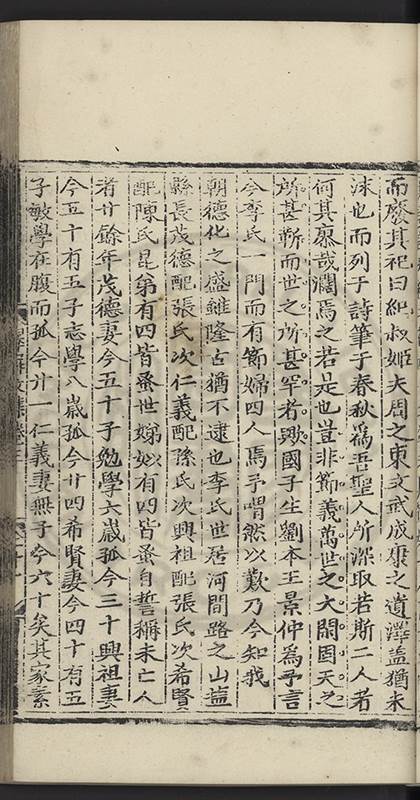 而廢其祀曰紀叔姬夫周之東文武成康之遺澤蓋猶未
沫也而列于詩筆于春秋爲吾聖人所深取若斯二人者
何其寥哉濶焉之若是也豈非節義萬世之大閑固天之
所甚靳而世之所甚罕者歟國子生劉本王景仲爲予言
今李氏一門而有節婦四人焉予喟然以歎乃今知我
朝德化之盛雖隆古猶不逮也李氏世居河間路之山
縣長茂德配張氏次仁義配孫氏次興祖配張氏次希賢
配陳氏昆弟有四皆蚤世娣姒有四皆蚤自誓稱未亡人
者廿餘年茂德妻今五十子勉學六歲孤今三十興祖妻
今五十有五子志學八歲孤今廿四希賢妻今四十有五
子敏學在腹而孤今廿一仁義妻無子今六十矣其家素